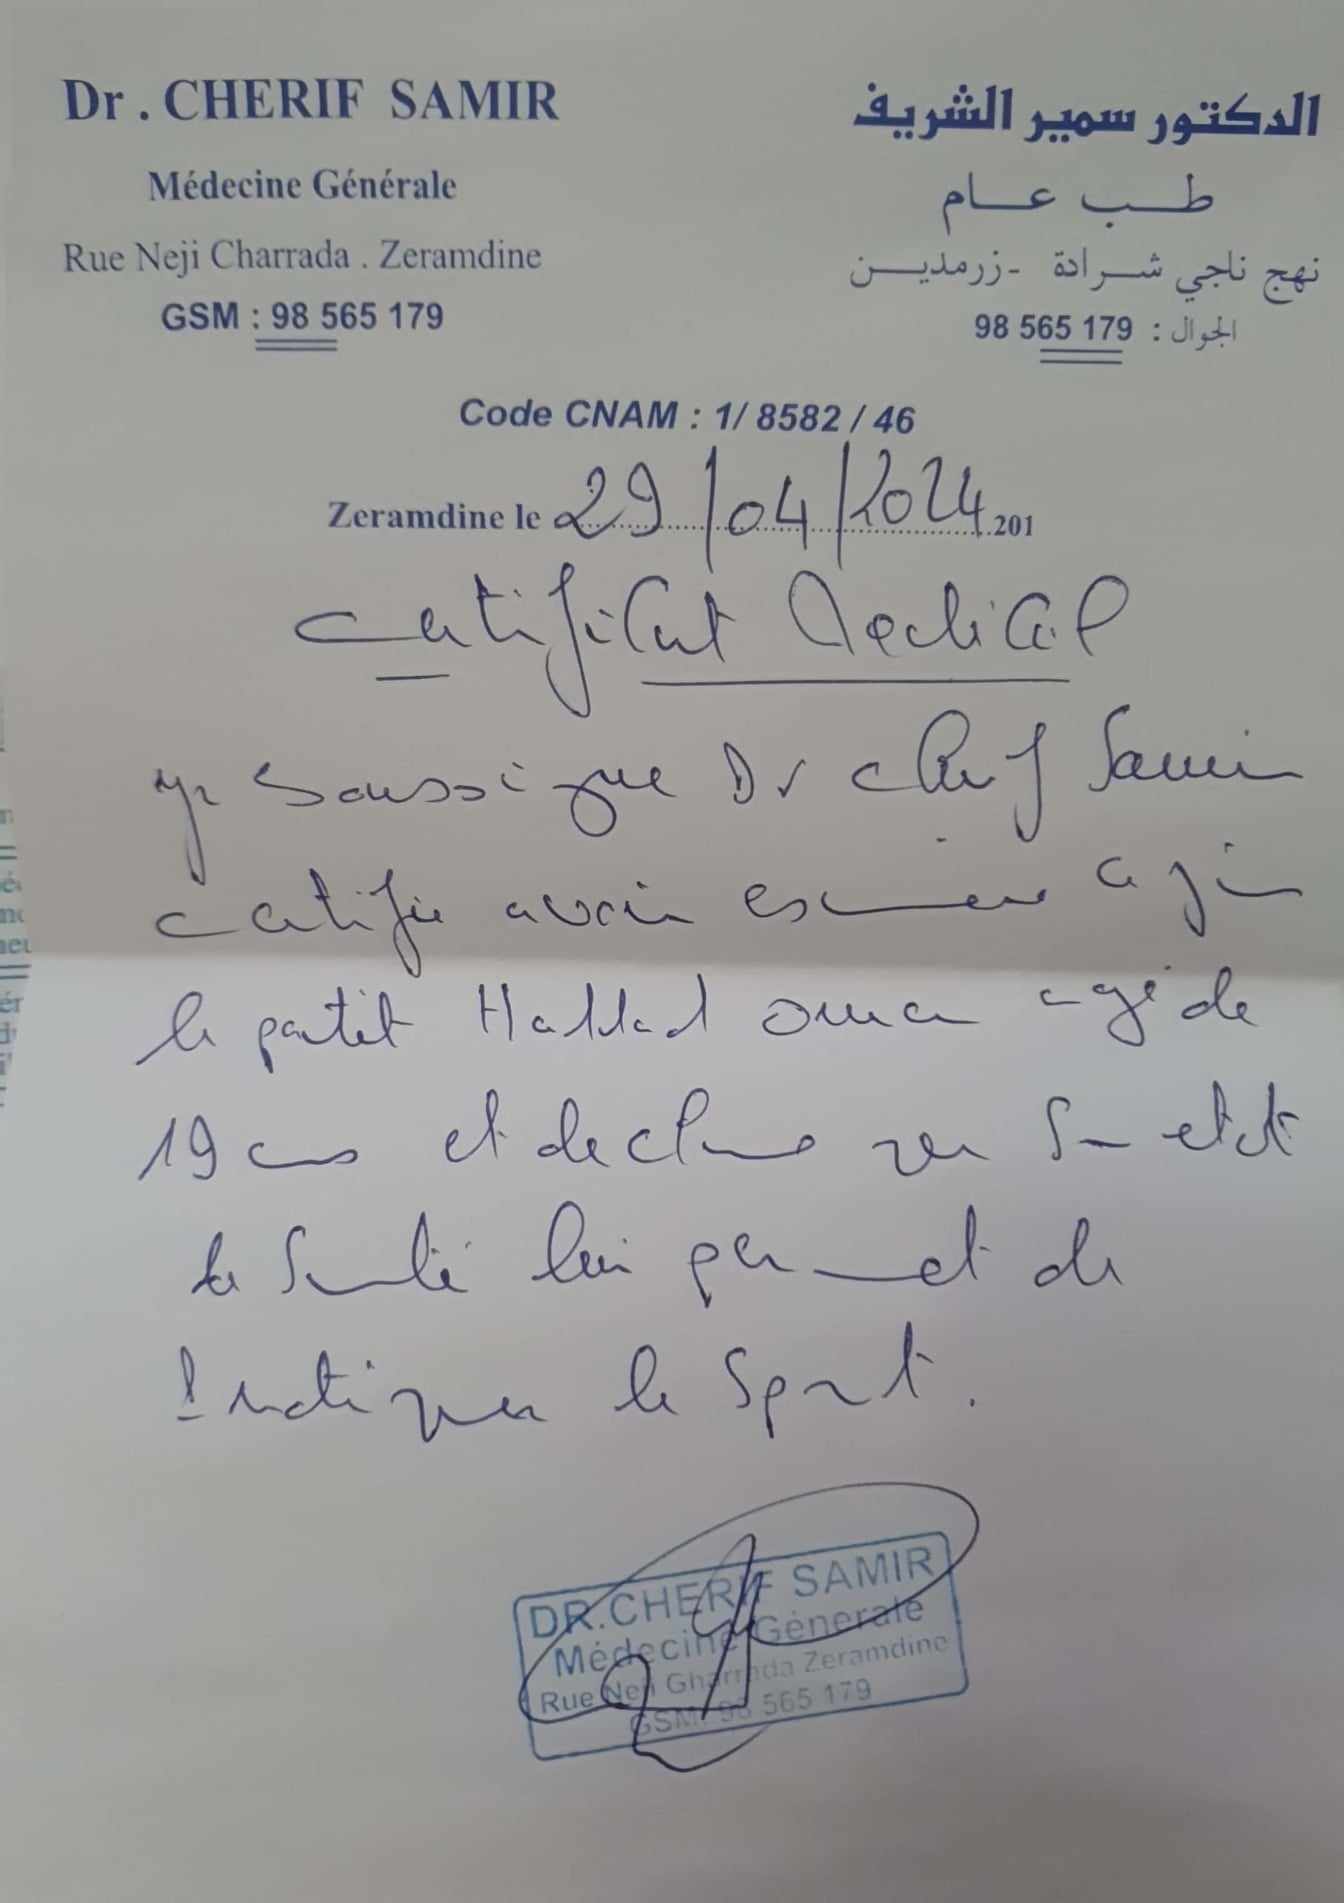 Dr . CHERIF SAMIR
Médecine Générale
Rue Neji Charrada . Zeramdine
GSM : 98 565 179
الدكتور سمير الشريف
طب عام
نهج ناجي شرادة - زرمدين
الجوال : 98 565 179
Code CNAM : 1/ 8582 / 46
Zeramdine le 29/04/2024 201
Certificat Medical
je soussigne Dr Cherif Samir
certifie avoir examiner ce jour
le patient Haddad Omar agé de
19 ans et declare que son etat
de Santé lui permet de
pratiquer le Sport.
DR.CHERIF SAMIR
Médecine Génerale
Rue Neji Gharrada Zeramdine
GSM: 98 565 179